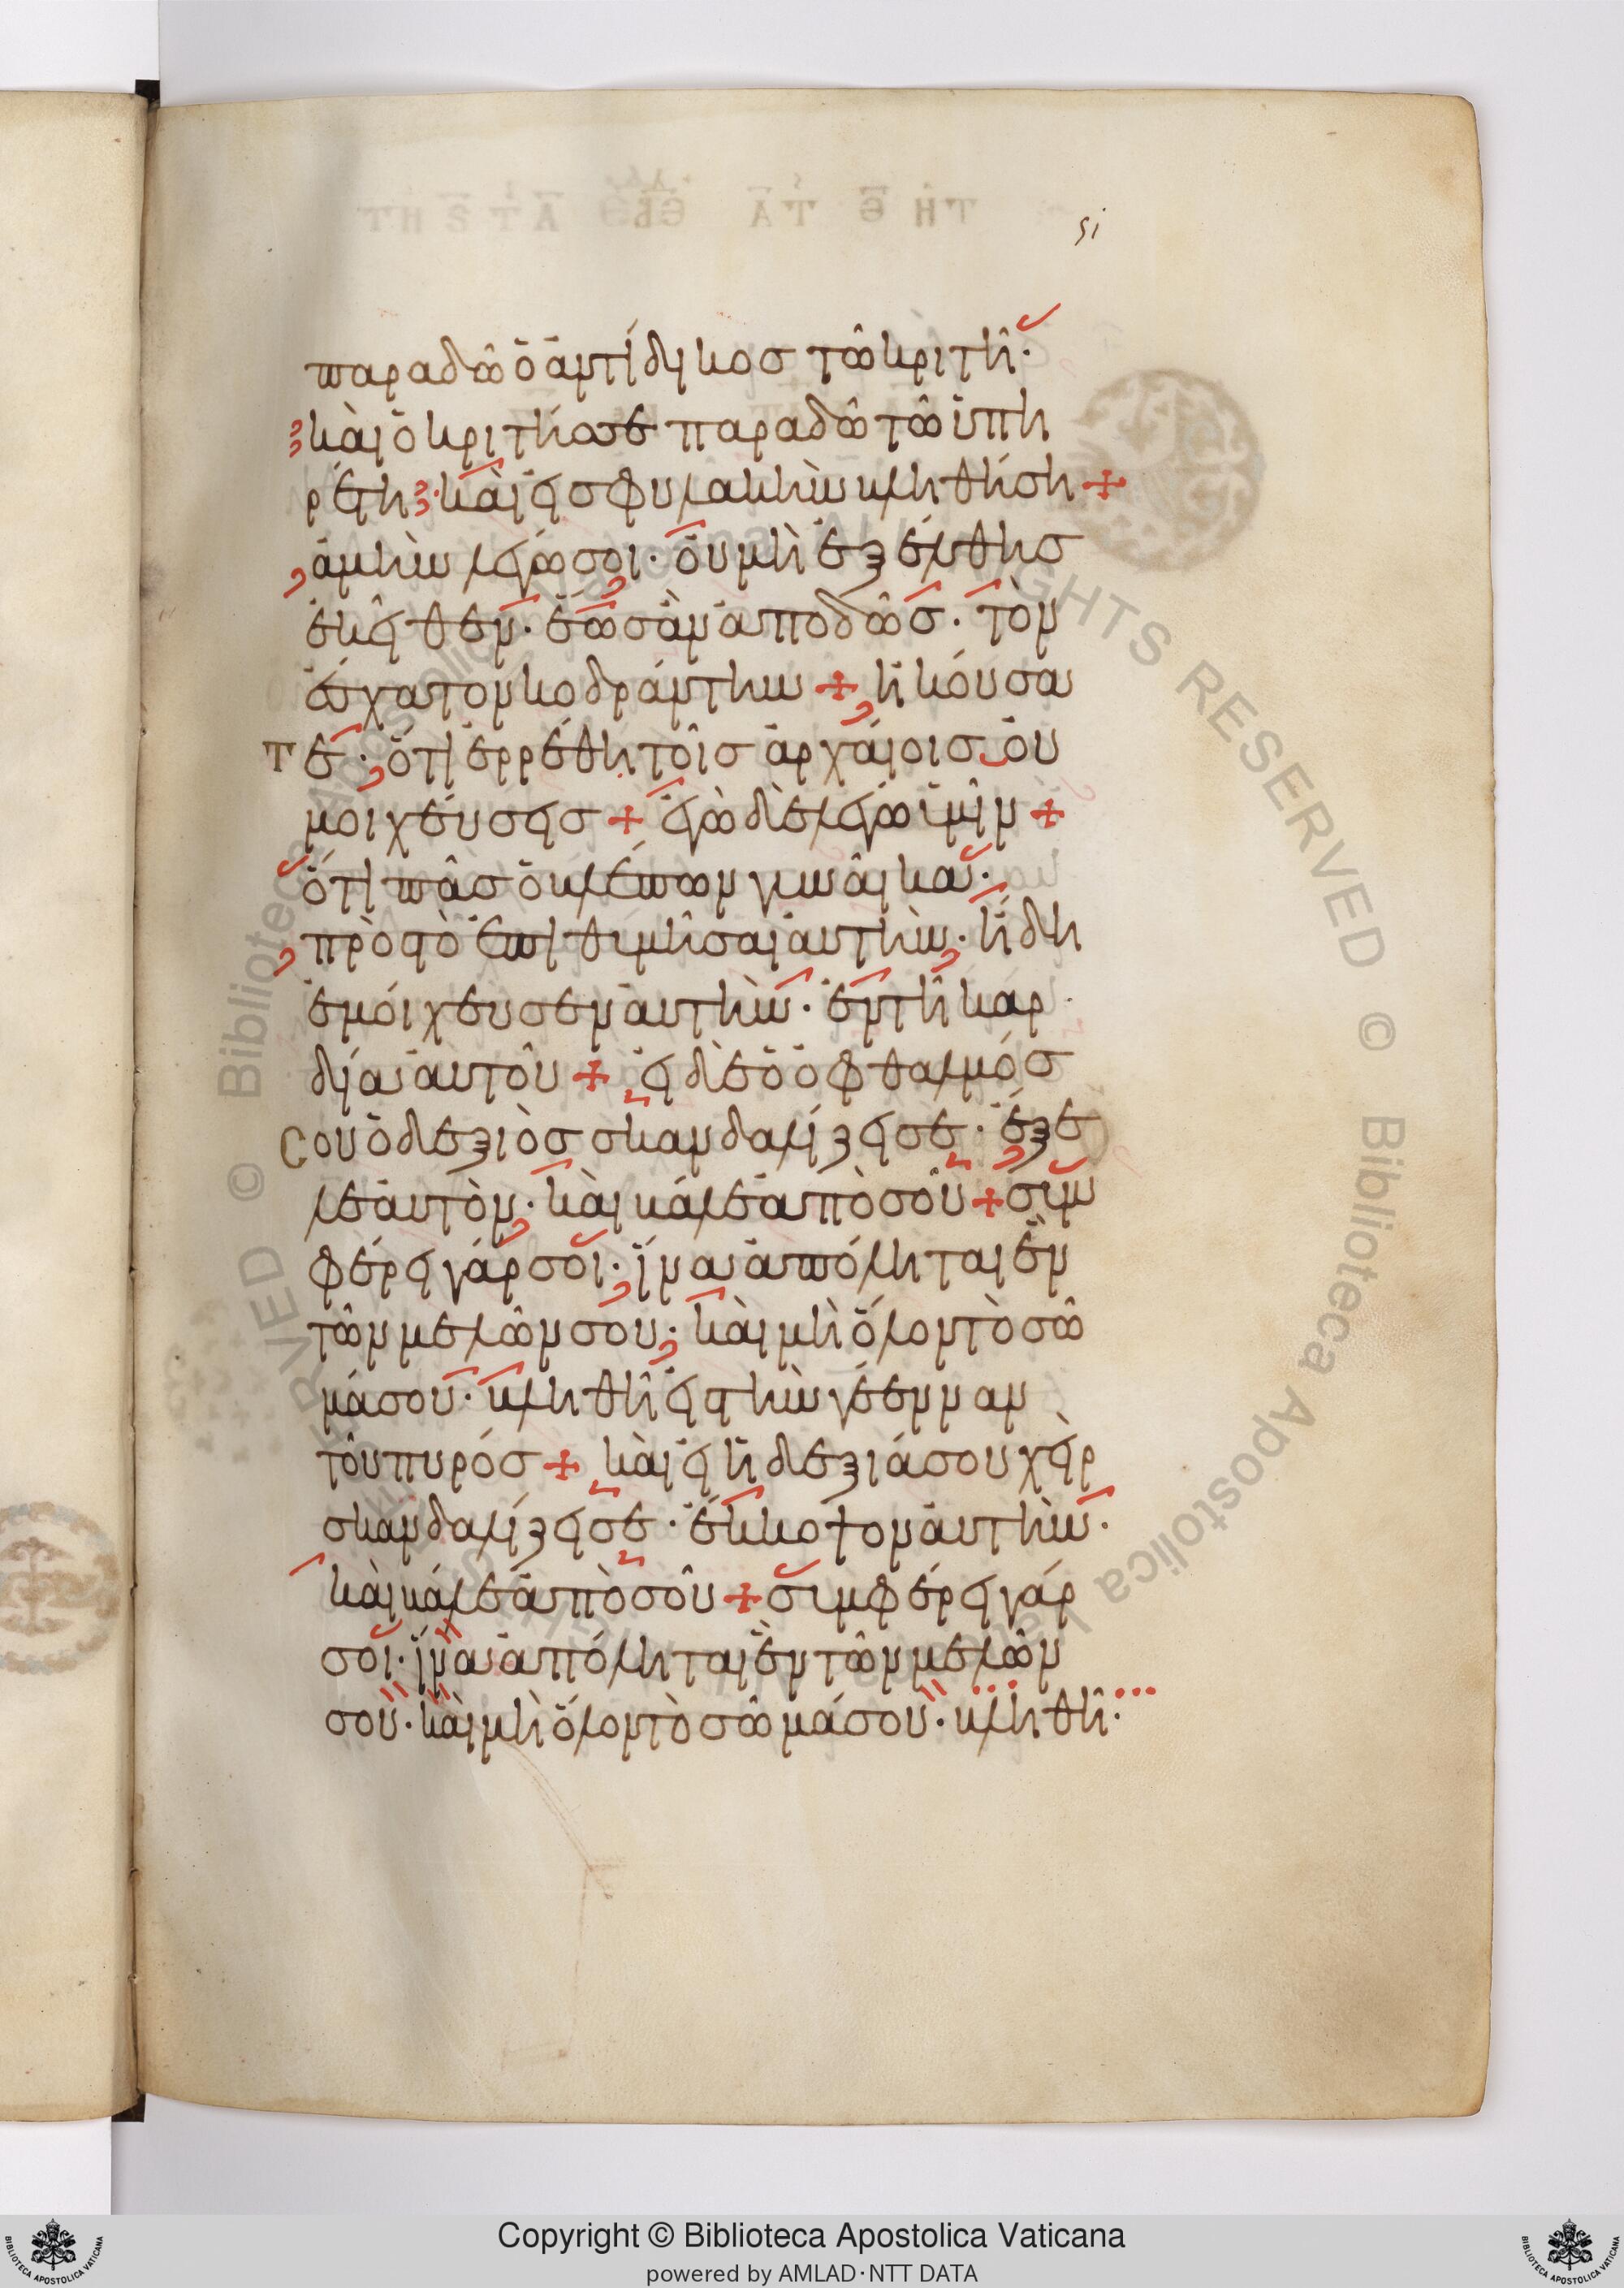 si
παραδῶ ὁ ἀντίδικος τῶ κριτῆ·
καὶ ὁ κριτής σε παραδῶ τῶ ὑπη
ρέτη· καὶ εἰς φυλακὴν κληθήση +
ἀμὴν λέγω σοι· οὐ μὴ ἐξέλθης
ἐκεῖθεν· ἕως ἂν ἀποδῶς· τὸν
ἔσχατον κοδράντην + ἠκούσα
τε· ὅτι ἐρρέθη τοῖς ἀρχαίοις οὐ
μοιχεύσεις + ἐγὼ δὲ λέγω ὑμῖν +
ὅτι πᾶς ὁ βλέπων γυναῖκα·
πρὸς τὸ ἐπιθυμῆσαι αὐτὴν· ἤδη
ἐμοίχευσεν αὐτὴν· ἐν τῆ καρ
δία αὐτοῦ + εἰ δὲ ὁ ὀφθαλμός
σου ὁ δεξιὸς σκανδαλίζει σε· ἔξε
λε αὐτὸν· καὶ βάλε ἀπὸ σοῦ + συμ
φέρει γάρ σοι· ἵνα ἀπόληται ἓν
τῶν μελῶν σου· καὶ μὴ ὅλον τὸ σῶ
μά σου· βληθῆ εἰς τὴν γέενναν
τοῦ πυρός + καὶ εἰ ἡ δεξιά σου χεὶρ
σκανδαλίζει σε· ἔκκοψον αὐτὴν·
καὶ βάλε ἀπὸ σοῦ + συμφέρει γάρ
σοι· ἵνα ἀπόληται ἓν τῶν μελῶν
σου· καὶ μὴ ὅλον τὸ σῶμά σου· βληθῆ·
© Biblioteca Apostolica Vaticana ALL RIGHTS RESERVED
Copyright © Biblioteca Apostolica Vaticana
powered by AMLAD·NTT DATA
BIBLIOTECA APOSTOLICA VATICANA
BIBLIOTECA APOSTOLICA VATICANA